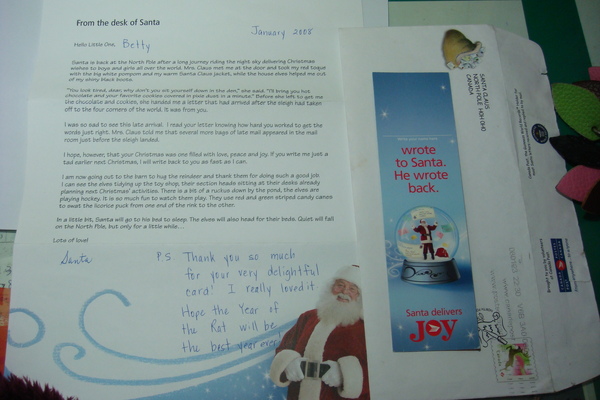 From the desk of Santa
January 2008
Hello Little One, Betty
Santa is back at the North Pole after a long journey riding the night sky delivering Christmas
wishes to boys and girls all over the world. Mrs. Claus met me at the door and took my red toque
with the big white pompom and my warm Santa Claus jacket, while the house elves helped me out
of my shiny black boots.
"You look tired, dear, why don't you sit yourself down in the den," she said. "I'll bring you hot
chocolate and your favorite cookies covered in pixie dust in a minute." Before she left to get me
the chocolate and cookies, she handed me a letter that had arrived after the sleigh had taken off
to the four corners of the world. It was from you.
I was so sad to see this late arrival. I read your letter knowing how hard you worked to get the
words just right. Mrs. Claus told me that several more bags of late mail appeared in the mail
room just before the sleigh landed.
I hope, however, that your Christmas was one filled with love, peace and joy. If you write me just a
tad earlier next Christmas, I will write back to you as fast as I can.
I am now going out to the barn to hug the reindeer and thank them for doing such a good job.
I can see the elves tidying up the toy shop, their section heads sitting at their desks already
planning next Christmas' activities. There is a bit of a ruckus down by the pond, the elves are
playing hockey. It is so much fun to watch them play. They use red and green striped candy canes
to swat the licorice puck from one end of the rink to the other.
In a little bit, Santa will go to his bed to sleep. The elves will also head for their beds. Quiet will fall
on the North Pole, but only for a little while...
Lots of love!
Santa
P.S Thank you so much
for your very delightful
card! I really loved it.
Hope the Year of
the Rat will be
the best year ever
wrote
to Santa.
He wrote
back.
Santa delivers
JOY
SANTA CLAUS
NORTH POLE HOH OHO
CANADA